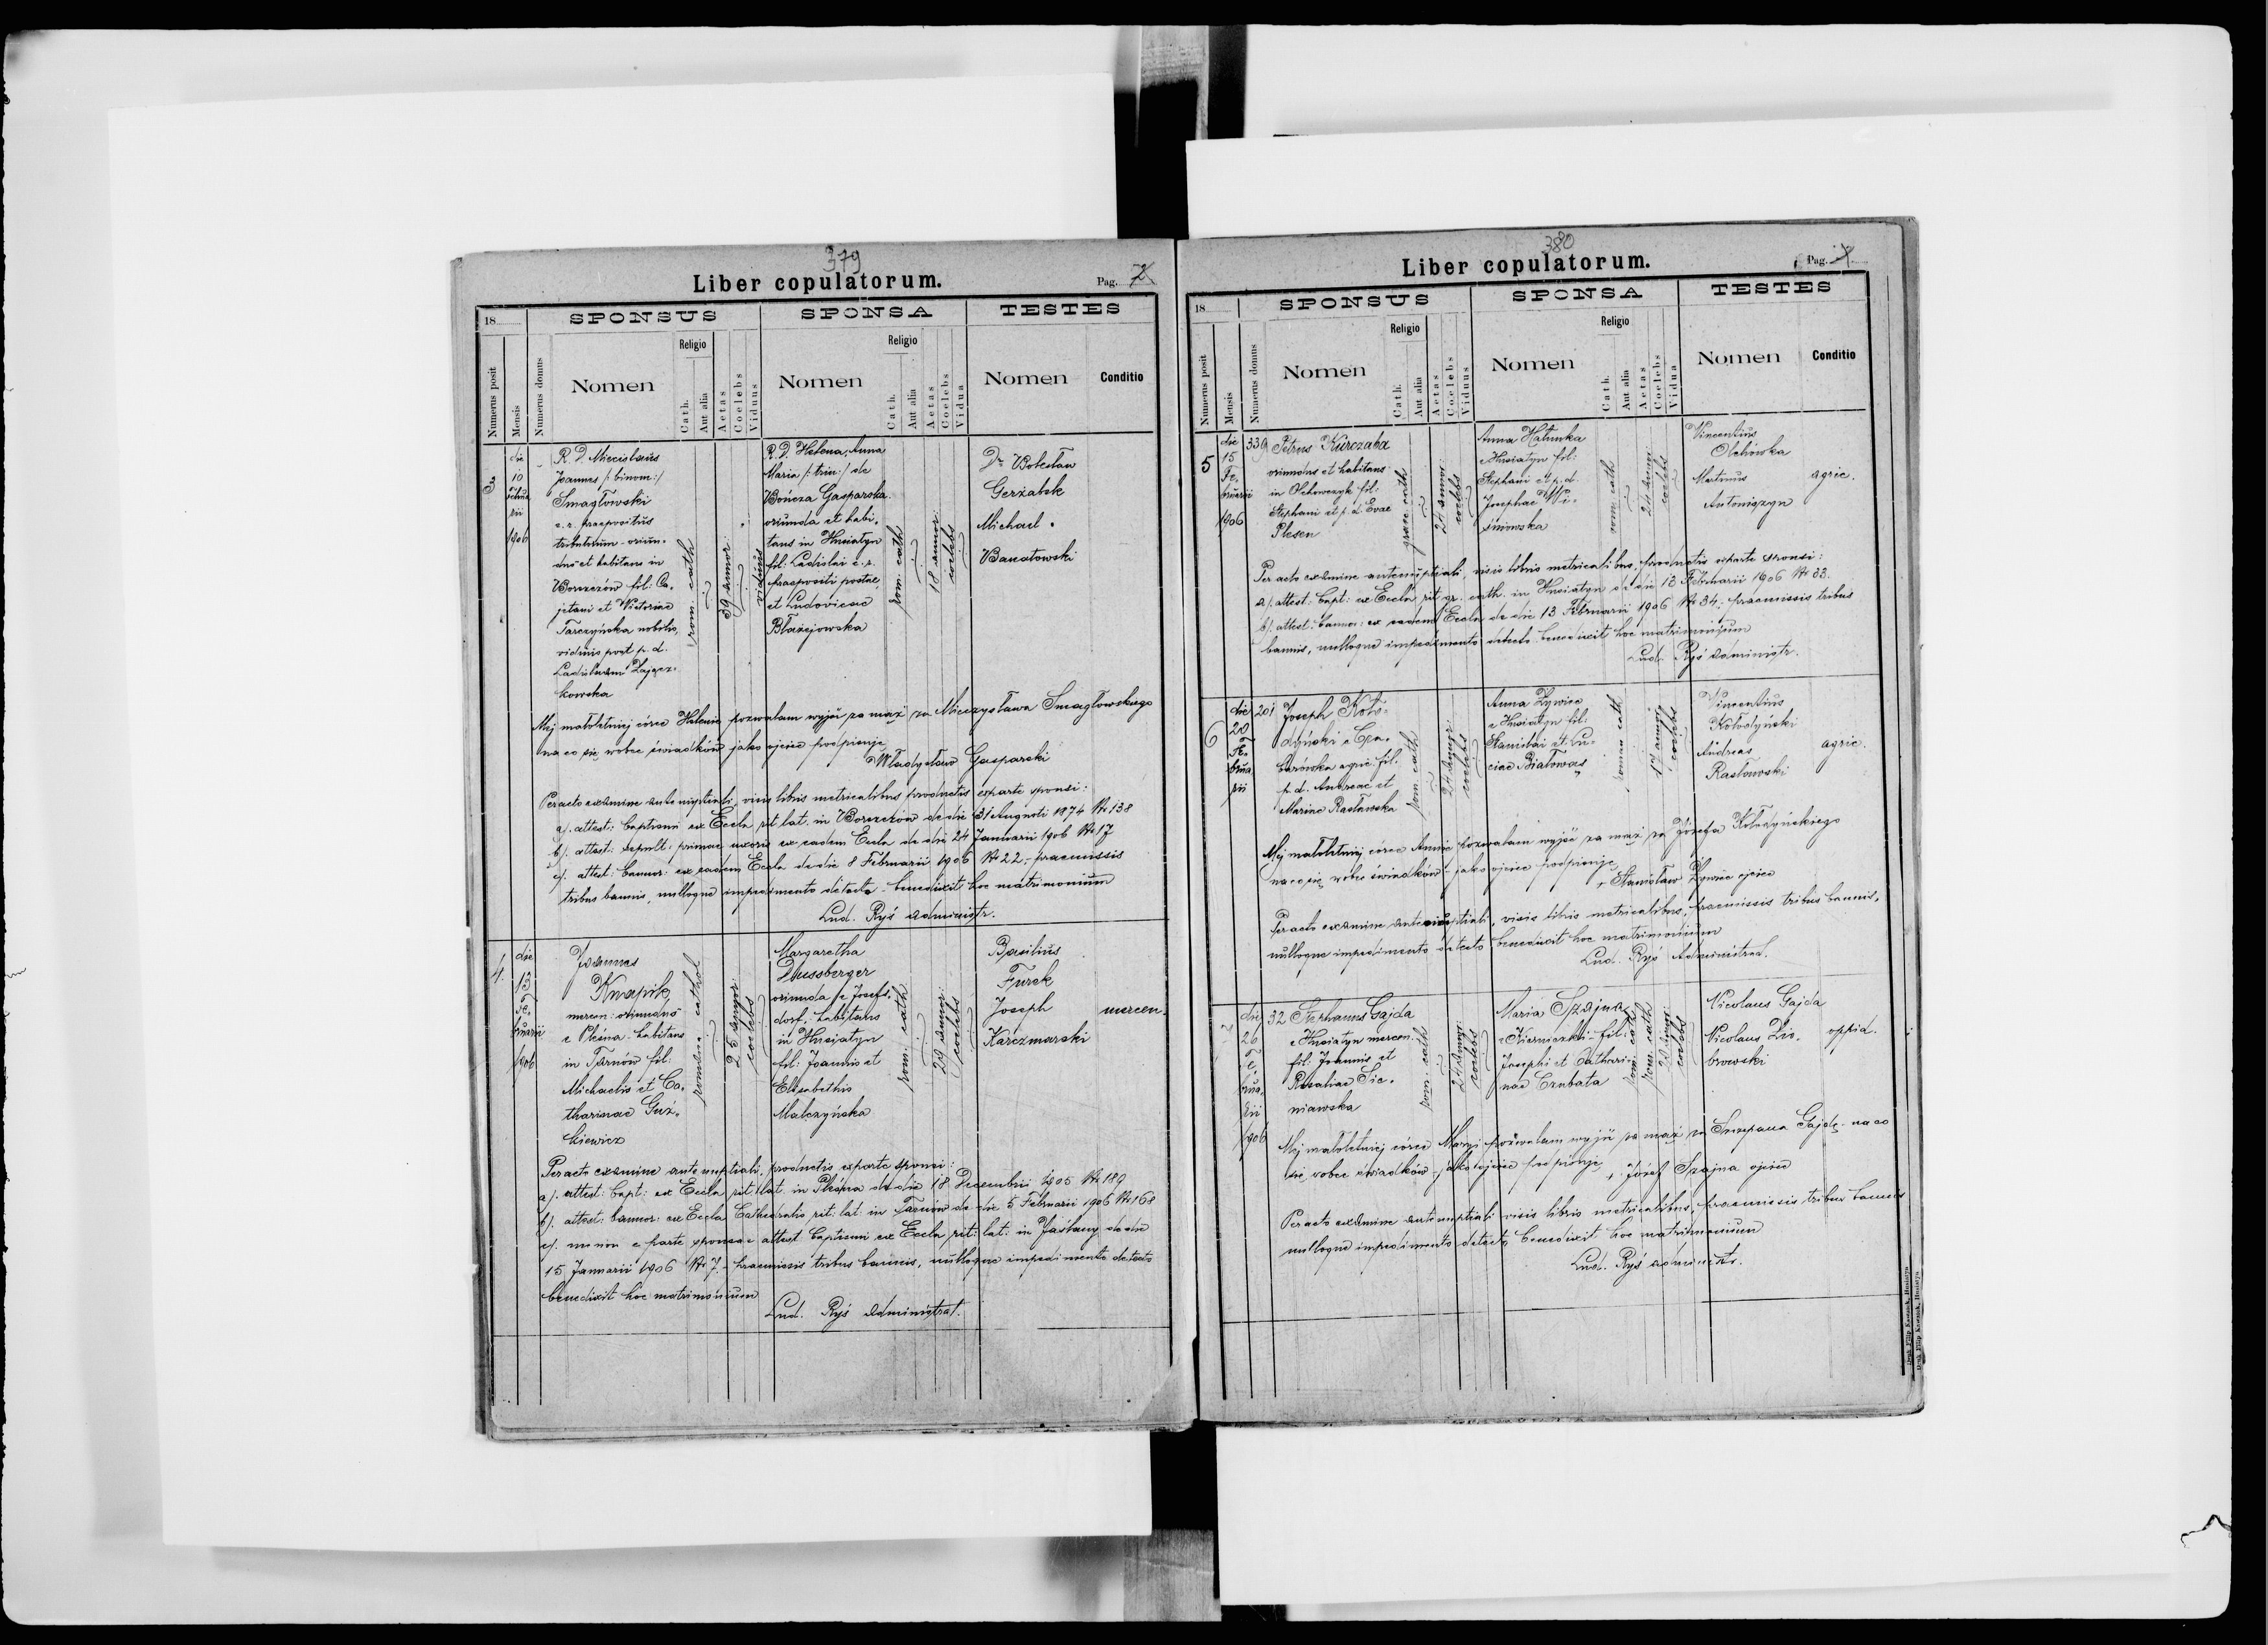 379
Liber copulatorum.
Pag. 7
18
SPONSUS
SPONSA
TESTES
Numerus posit
Mensis
Numerus domus
Nomen
Religio
Cath.
Aut alia
Aetas
Coelebs
Viduus
Nomen
Religio
Cath.
Aut alia
Aetas
Coelebs
Vidua
Nomen
Conditio
3
die
10
Februa
rii
1906
R. D. Miecislaus
Joannes /: binom:/
Smagłowski
c. r. praepositus
tributorum - oriun-
dus et habitans in
Borszczów fil: Ca-
jetani et Victoriae
Tarczyńska nobilis,
viduus post p. d.
Ladislaam Zającz-
kowska
rom. cath
39 annor.
viduus
R. D. Helena, Anna
Maria /: trin:/ de
Bończa Gasparska
oriunda et habi-
tans in Husiatyn
fil: Ladislai c. r.
praepositi postae,
et Ludovicae
Błażejowska
rom. cath
18 annor.
coelebs
Dr Bolesław
Gerżabek
Michael
Banatowski
Mej małoletniej córce Helenie pozwalam wyjść za mąż za Mieczysława Smagłowskiego
na co się wobec świadków jako ojciec podpisuję
Władysław Gasparski
Peracto examine antenuptiali, visis libris metricalibus productis exparte sponsi:
a/. attest: baptismi ex Eccla rit. lat. in Borszczów de die 31 Augusti 1874 № 138
b/. attest: sepult: primae uxoris ex eadem Eccla de die 24 Januarii 1906 № 17
c/. attest: bannor: ex eadem Eccla de die 8 Februarii 1906 № 22; praemissis
tribus bannis, nulloque impedimento detecto benedixit hoc matrimonium
Lud. Ryś administr.
4.
die
13
Fe-
bruarii
1906
Joannes
Knapik
mercen: oriundus
e Pleśna - habitans
in Tarnów fil:
Michaelis et Ca-
tharinae Guź-
kiewicz
romana cathol
25 annor.
coelebs
Margaretha
Dussberger
oriunda e Josefs-
dorf, habitans
in Husiatyn
fil: Joannis et
Elisabethis
Małczyńska
rom. cath
29 annor.
coelebs
Basilius
Furek
Joseph
Karczmarski
mercen.
Peracto examine antenuptiali, productis exparte sponsi:
a/. attest: bapt: ex Eccla rit. lat. in Pleśna de die 18 Decembrii 1905 № 189
b/. attest: bannor: ex Eccla Cathedralis rit: lat. in Tarnów de die 5 Februarii 1906 № 168
c/. nec non e parte sponsae attest baptismi ex Eccla rit: lat: in Jaślany de die
15 Januarii 1906 № 7. - praemissis tribus bannis, nulloque impedimento detecto
benedixit hoc matrimonium
Lud. Ryś administrat.
380
Liber copulatorum.
Pag.
18
SPONSUS
SPONSA
TESTES
Numerus posit
Mensis
Numerus domus
Nomen
Religio
Cath.
Aut alia
Aetas
Coelebs
Viduus
Nomen
Religio
Cath.
Aut alia
Aetas
Coelebs
Vidua
Nomen
Conditio
5
die
15
Fe-
bruarii
1906
339
Petrus Kurczaba
oriundus et habitans
in Olchowczyk fil:
Stephani et p. d. Evae
Plesen
graec cath
24 annor.
coelebs
Anna Hałunka
e Husiatyn fil:
Stephani et p. d.
Josephae Wi-
śniowska
rom. cath
24 annor.
coelebs
Vincentius
Olchowka
Martinus
Antoniszyn
agric.
Peracto examine antenuptiali, visis libris metricalibus, productis exparte sponsi:
a/. attest: bapt: ex Eccla rit. gr. cath. in Husiatyn de die 13 Februarii 1906 № 33.
b/. attest. bannor: ex eadem Eccla de die 13 Februarii 1906 № 34; praemissis tribus
bannis, nulloque impedimento detecto benedixit hoc matrimonium
Lud. Ryś administr.
6
die
20
Fe-
brua
rii
201
Joseph Koło-
dyński e Cza-
barówka agric. fil.
p. d. Andreae et
Mariae Rasławska
rom. cath
coelebs
Anna Żywiec
e Husiatyn fil:
Stanislai et Lu-
ciae Białowąs
roman cath
17 annor.
coelebs
Vincentius
Kołodyński
Andreas
Rasłowski
agric.
Mej małoletniej córce Annie pozwalam wyjść za mąż za Józefa Kołodyńskiego
na co się wobec świadków - jako ojciec podpisuję
+ Stanisław Żywiec ojciec
Peracto examine antenuptiali, visis libris metricalibus, praemissis tribus bannis,
nulloque impedimento detecto benedixit hoc matrimonium
Lud. Ryś Administrat.
7
die
26
Fe-
brua-
rii
1906
32
Stephanus Gajda
e Husiatyn mercen.
fil: Joannis et
Rosaliae Sie-
niawska
rom. cath
24 annor.
coelebs
Maria Szajna
e Kierniczki - fil:
Josephi et Cathari-
nae Czubata
rom. cath
rom. cath
20 annor.
coelebs
Nicolaus Gajda
Nicolaus Zio-
browski
oppid.
Mej małoletniej córce Maryi pozwalam wyjść za mąż za Szczepana Gajdę - na co
się wobec świadków - jako ojciec podpisuję + Józef Szajna ojciec
Peracto examine antenuptiali visis libris metricalibus, praemissis tribus bannis
nulloque impedimento detecto benedixit hoc matrimonium
Lud. Ryś administr.